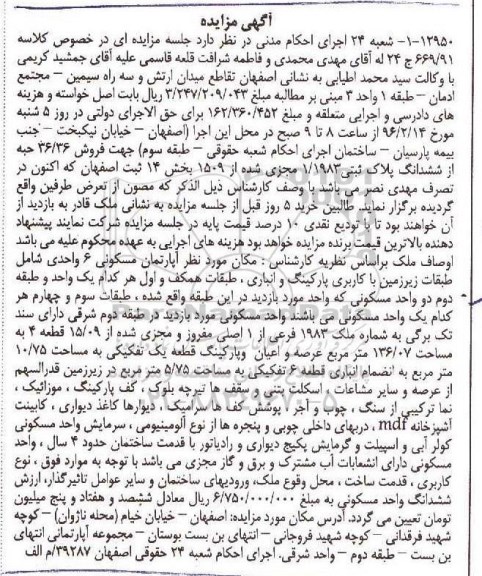 آگهی مزایده
۱-۱۲۹۵۰- شعبه ۲۴ اجرای احکام مدنی در نظر دارد جلسه مزایده ای در خصوص کلاسه
۶۶۹/۹۱ ج ۲۴ له آقای مهدی محمدی و فاطمه شرافت قلعه قاسمی علیه آقای جمشید کریمی
با وکالت سید محمد اطیابی به نشانی اصفهان تقاطع میدان ارتش و سه راه سیمین – مجتمع
ادمان – طبقه ۱ واحد ۳ مبنی بر مطالبه مبلغ ۳/۲۴۷/۲۰۹/۰۴۳ ریال بابت اصل خواسته و هزینه
های دادرسی و اجرایی متعلقه و مبلغ ۱۶۲/۳۶۰/۴۵۲ برای حق الاجرای دولتی در روز ۵ شنبه
مورخ ۹۶/۲/۱۴ از ساعت ۸ تا ۹ صبح در محل این اجرا (اصفهان – خیابان نیکبخت – جنب
بیمه پارسیان – ساختمان اجرای احکام شعبه حقوقی – طبقه سوم) جهت فروش ۳۶/۳۶ حبه
از ششدانگ پلاک ثبتی ۱/۱۹۸۳ مجزی شده از ۱۵۰۹ بخش ۱۴ ثبت اصفهان که اکنون در
تصرف مهدی نصر می باشد با وصف کارشناس ذیل الذکر که مصون از تعرض طرفین واقع
گردیده برگزار نماید. طالبین خرید ۵ روز قبل از جلسه مزایده به نشانی ملک قادر به بازدید از
آن خواهند بود تا با تودیع نقدی ۱۰ درصد قیمت پایه در جلسه مزایده شرکت نمایند پیشنهاد
دهنده بالاترین قیمت برنده مزایده خواهد بود هزینه های اجرایی به عهده محکوم علیه می باشد
اوصاف ملک براساس نظریه کارشناس : مکان مورد نظر آپارتمان مسکونی ۶ واحدی شامل
طبقات زیرزمین با کاربری پارکینگ و انباری ، طبقات همکف و اول هر کدام یک واحد و طبقه
دوم دو واحد مسکونی که واحد مورد بازدید در این طبقه واقع شده ، طبقات سوم و چهارم هر
کدام یک واحد مسکونی می باشند واحد مسکونی مورد بازدید در طبقه دوم شرقی دارای سند
تک برگی به شماره ملک ۱۹۸۳ فرعی از ۱ اصلی مفروز و مجزی شده از ۱۵/۰۹ قطعه ۴ به
مساحت ۱۳۶/۰۷ متر مربع عرصه و اعیان وپارکینگ قطعه یک تفکیکی به مساحت ۱۰/۷۵
متر مربع به انضمام انباری قطعه ۶ تفکیکی به مساحت ۵/۷۵ متر مربع در زیرزمین قدرالسهم
از عرصه و سایر مشاعات ، اسکلت بتنی و سقف ها تیرچه بلوک ، کف پارکینگ ، موزائیک ،
نما ترکیبی از سنگ ، چوب و آجر ، پوشش کف ها سرامیک، دیوارها کاغذ دیواری ، کابینت
آشپزخانه mdf ، دربهای داخلی چوبی و پنجره ها از نوع آلومینیومی ، سرمایش واحد مسکونی
کولر آبی و اسپیلت و گرمایش پکیج دیواری و رادیاتور با قدمت ساختمان حدود ۴ سال ، واحد
مسکونی دارای انشعابات آب مشترک و برق و گاز مجزی می باشد با توجه به موارد فوق ، نوع
کاربری ، قدمت ساخت ، محل وقوع ملک، ورودیهای ساختمان و سایر عوامل تاثیرگذار، ارزش
ششدانگ واحد مسکونی به مبلغ ۶/۷۵۰/۰۰۰/۰۰۰ ریال معادل ششصد و هفتاد و پنج میلیون
تومان تعیین می گردد. آدرس مکان مورد مزایده: اصفهان – خیابان خیام (محله ناژوان) – کوچه
شهید فرقدانی – کوچه شهید فروجانی – انتهای بن بست بوستان – مجموعه آپارتمانی انتهای
بن بست – طبقه دوم – واحد شرقی. اجرای احکام شعبه ۲۴ حقوقی اصفهان ۳۹۲۸۷/م الف